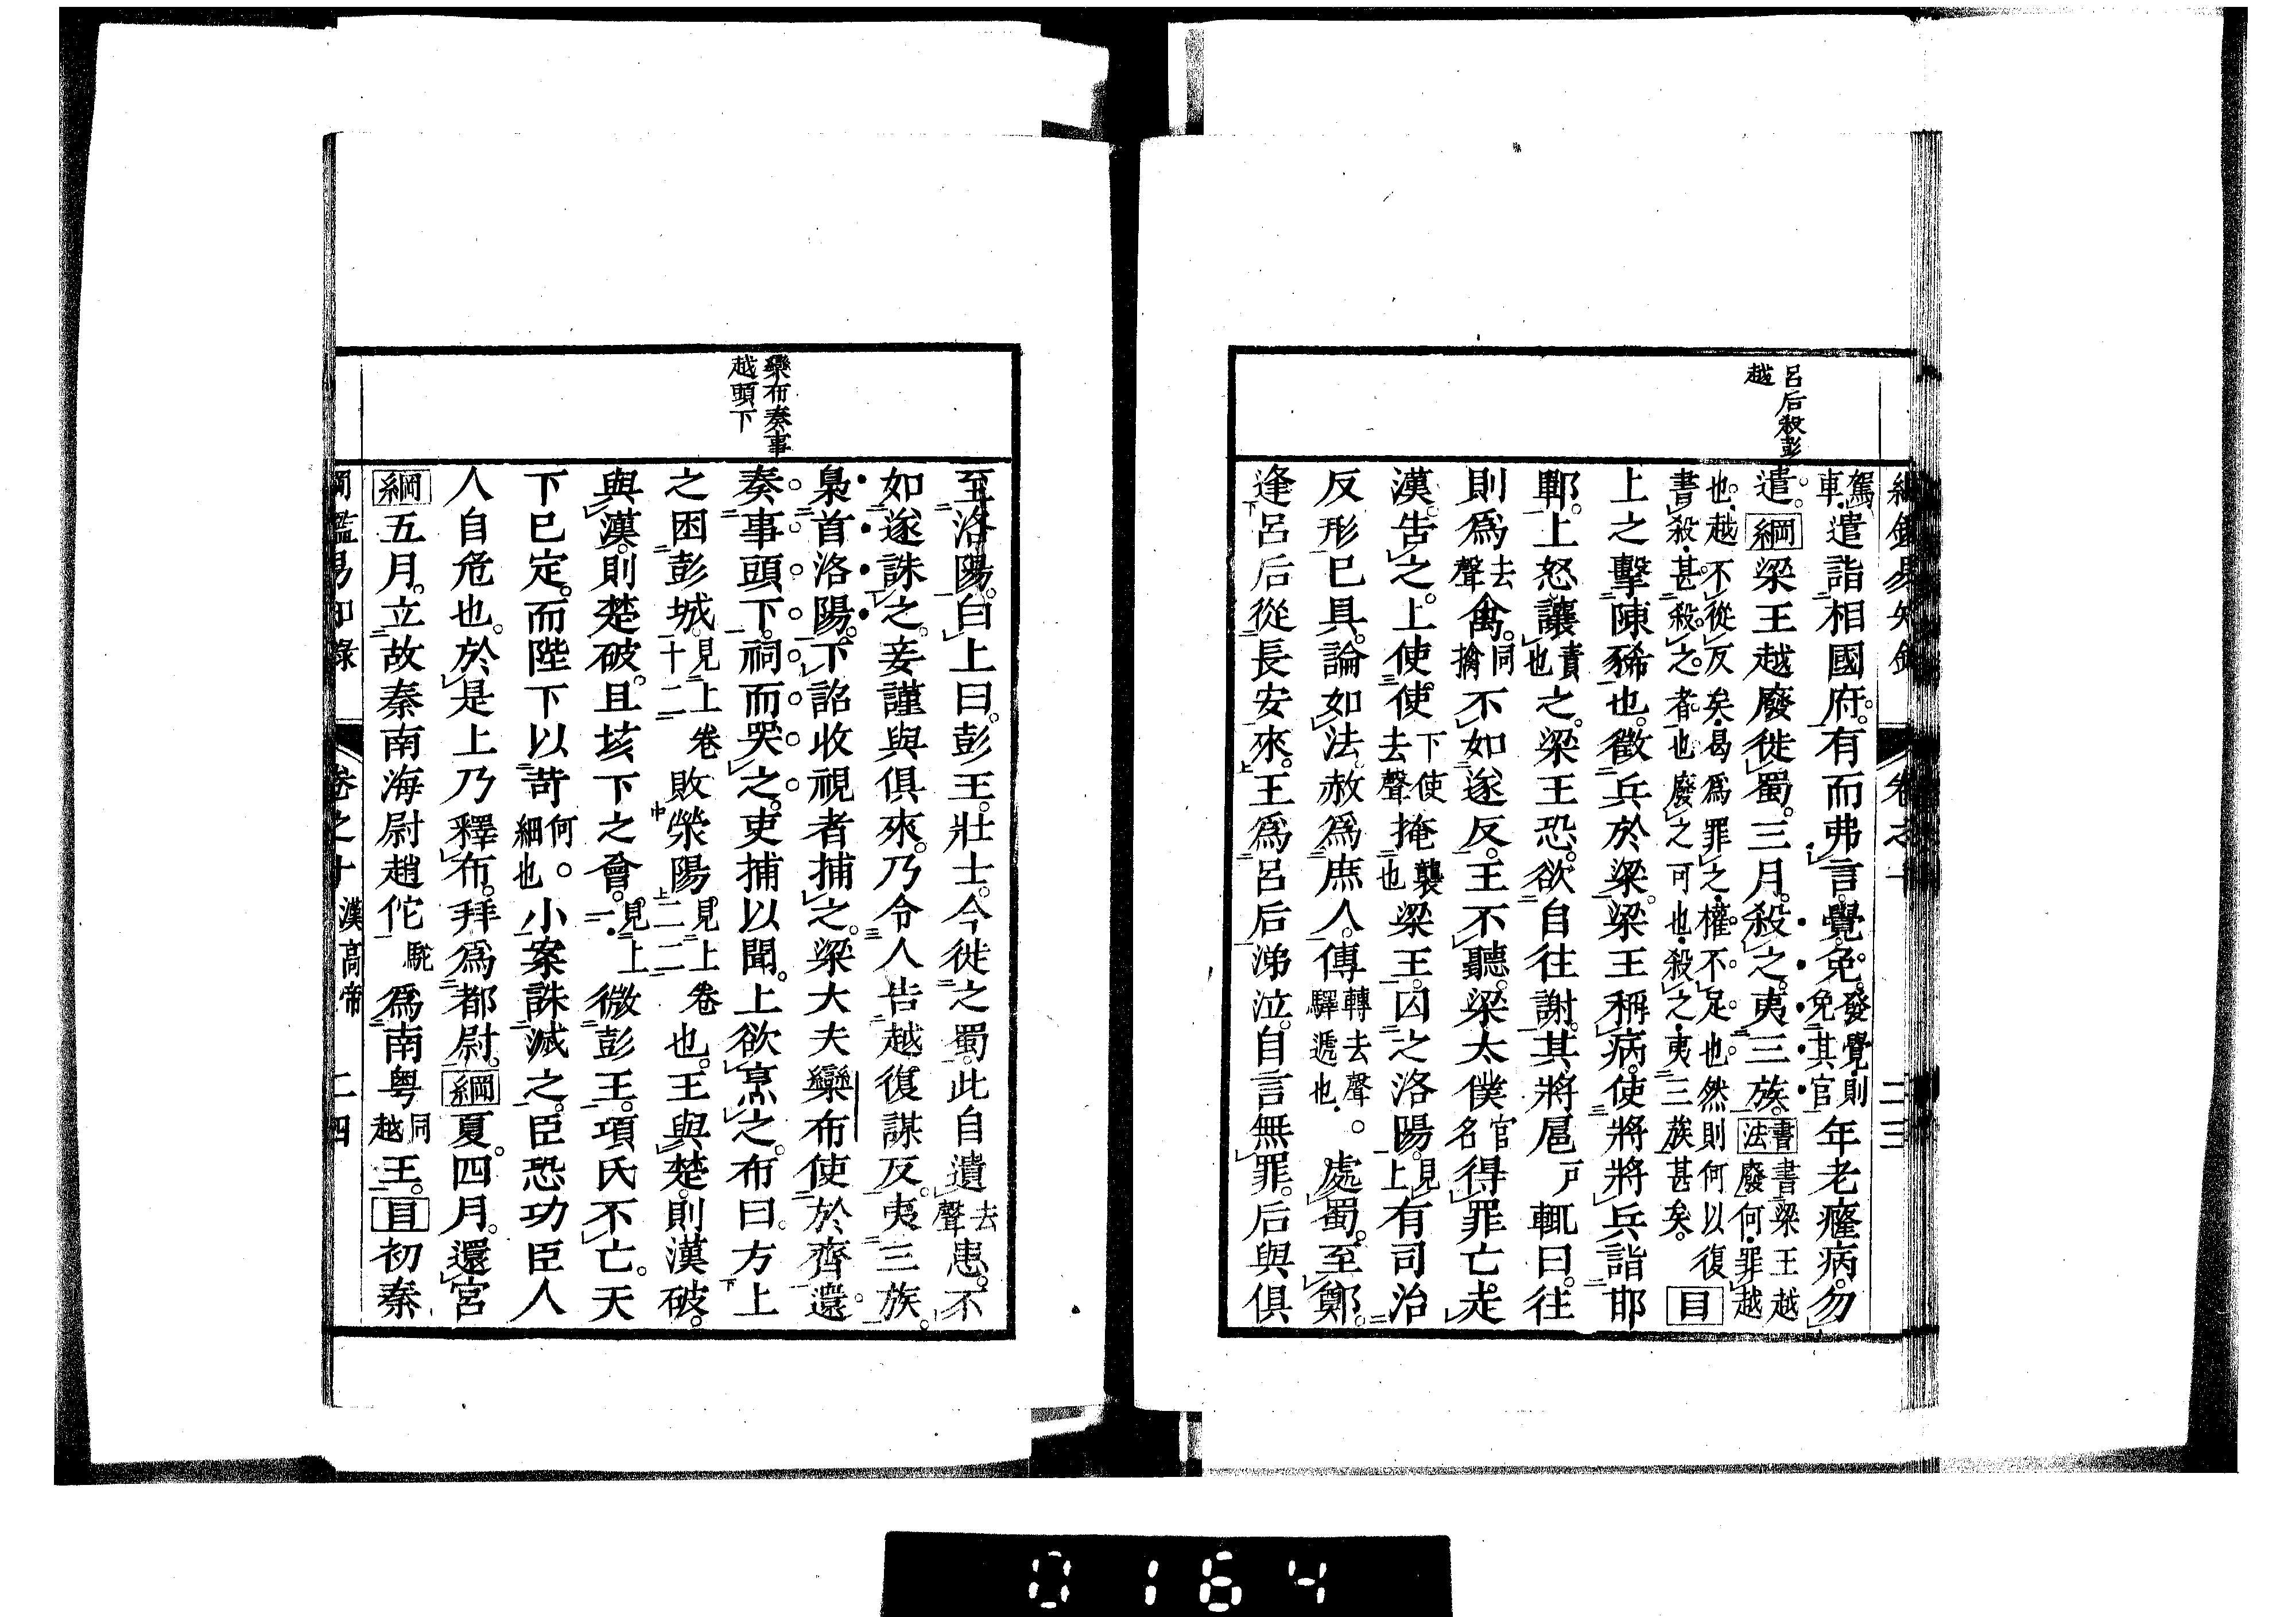 綱鑑易知錄 卷之十 二三
呂后殺彭
越
駕車遣詣相國府。有而弗言。覺免。發覺則免其官年老癃病。勿
遣。綱梁王越廢徙蜀。三月。殺之。夷三族。書法書梁王越廢何罪越
也。越不從反矣。曷爲罪之。權不足也。然則何以復書殺。甚殺之者也。廢之可也。殺之夷三族甚矣。目
上之擊陳豨也。徵兵於梁。梁王稱病。使將將兵詣邯
鄲。上怒讓責也之。梁王恐。欲自往謝。其將扈戶輒曰。往
則爲去聲禽。同擒不如遂反。王不聽。梁太僕官名得罪亡走
漢。告之。上使使下使去聲掩襲也梁王。囚之洛陽。見上有司治
反形已具。論如法。赦爲庶人。傳轉去聲驛遞也。處蜀。至鄭。
逢呂后從長安來。王爲呂后涕泣。自言無罪。后與俱
至洛陽。白上曰。彭王。壯士。今徙之蜀。此自遺去聲患。不
如遂誅之。妾謹與俱來。乃令人告越復謀反。夷三族。
梟首洛陽。下詔收視者捕之。梁大夫欒布使於齊還。
奏事頭下。祠而哭之。吏捕以聞。上欲烹之。布曰。方上
之困彭城。見上卷十二敗滎陽見上卷二二也。王與楚則漢破。
與漢則楚破。且垓下之會。見上一微彭王。項氏不亡。天
下已定。而陛下以苛何。細也小案誅滅之。臣恐功臣人
人自危也。於是上乃釋布。拜爲都尉。綱夏四月。還宮
綱五月。立故秦南海尉趙佗駝爲南粵同越王。目初秦
欒布奏事
越頭下
綱鑑易知錄 卷之十 漢高帝 二四
0164